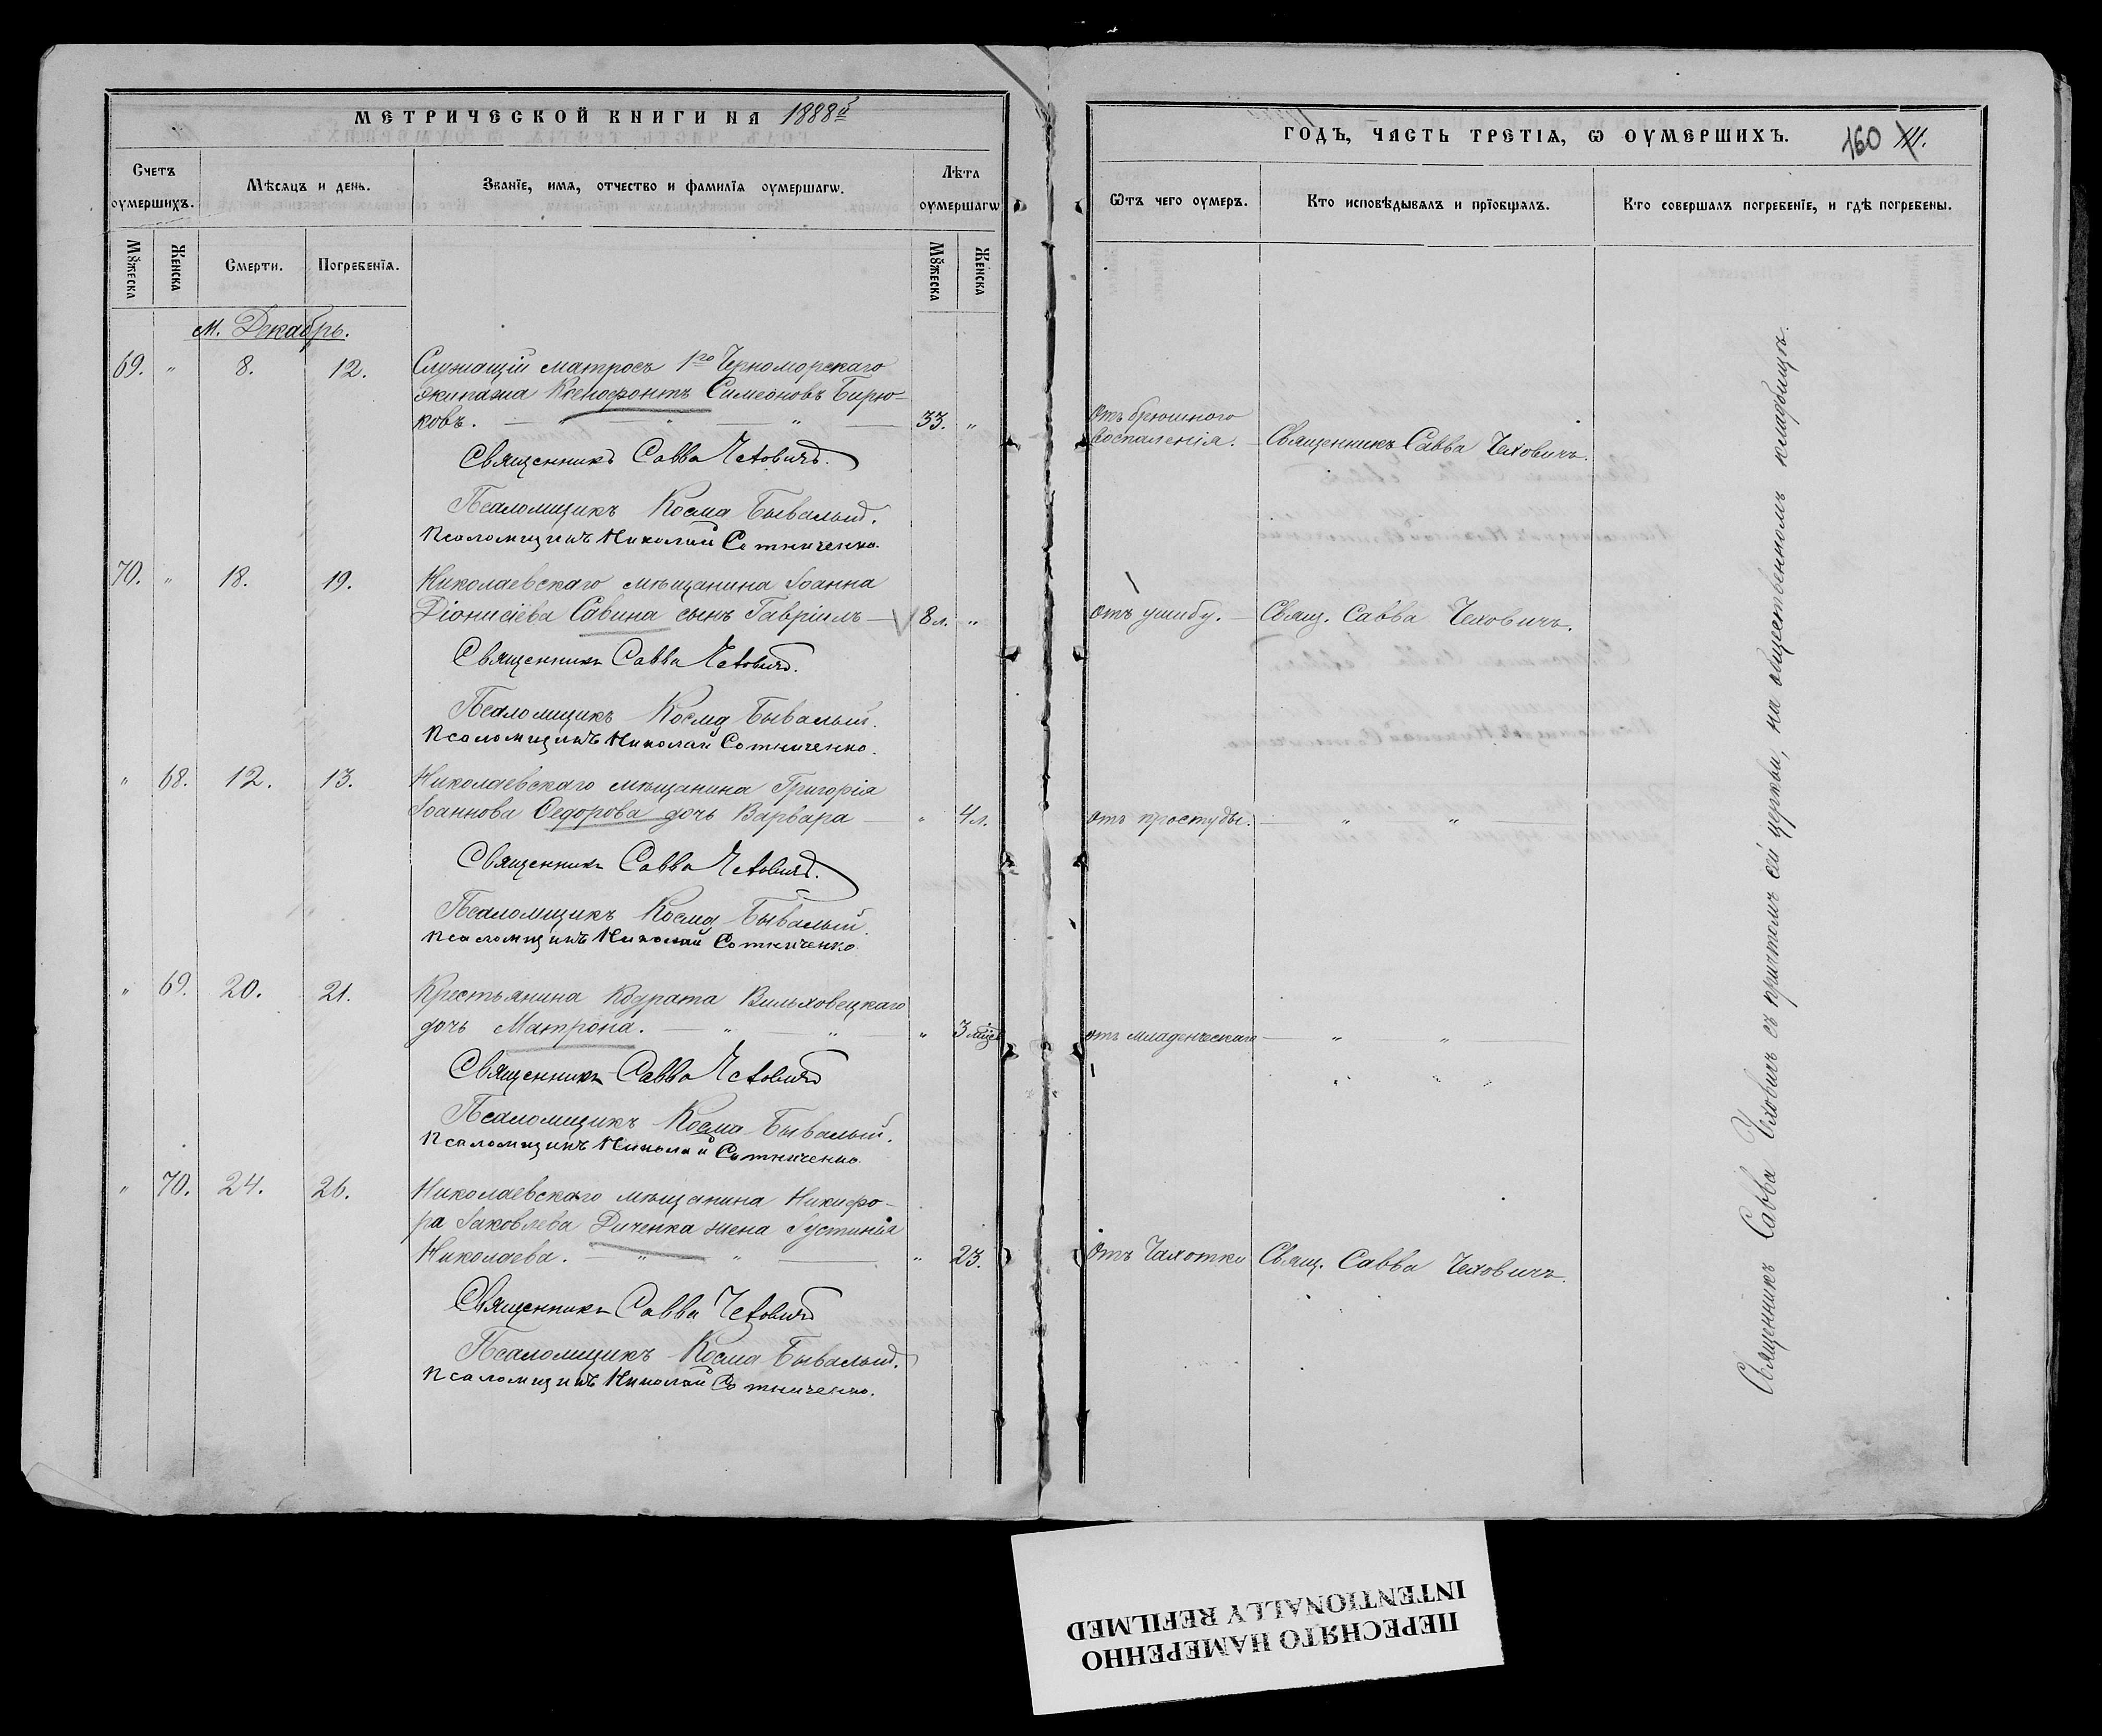 МЕТРИЧЕСКОЙ КНИГИ НА 1888й
Счетъ оумершихъ.
Мѣсяцъ и день.
Званїе, имя, отчество и фамилїя оумершагѡ.
Лѣта оумершагѡ
Мꙋжеска
Женска
Смерти.
Погребенїя.
Мꙋжеска
Женска
м. Декабрь.
69. " 8. 12. Служащій матросъ 1го Черноморскаго
экипажа Ксенофонтъ Симеоновъ Бирю-
ковъ. — " — " — " — 33. "
Священникъ Савва Чеховичъ.
Псаломщикъ Косма Бывалый.
Псаломщикъ Николай Сотниченко.
70. " 18. 19. Николаевскаго мѣщанина Іоанна
Діонисіева Савина сынъ Гавріилъ — 8 л. "
Священникъ Савва Чеховичъ.
Псаломщикъ Косма Бывалый.
Псаломщикъ Николай Сотниченко.
" 68. 12. 13. Николаевскаго мѣщанина Григорія
Іоаннова Ѳедорова дочь Варвара — " 4 л.
Священникъ Савва Чеховичъ.
Псаломщикъ Косма Бывалый.
Псаломщикъ Николай Сотниченко
" 69. 20. 21. Крестьянина Кодрата Вильховецкаго
дочь Матрона. — " — " — " 3 мѣс.
Священникъ Савва Чеховичъ
Псаломщикъ Косма Бывалый.
Псаломщикъ Николай Сотниченко
" 70. 24. 26. Николаевскаго мѣщанина Никифо-
ра Іаковлева Диченка жена Іустинія
Николаева. — " — " — " 23.
Священникъ Савва Чеховичъ
Псаломщикъ Косма Бывалый.
Псаломщикъ Николай Сотниченко.
ГОДЪ, ЧАСТЬ ТРЕТІЯ, Ѡ ОУМЕРШИХЪ. 160
Ѿтъ чего оумеръ.
Кто исповѣдывалъ и прїобщалъ.
Кто совершалъ погребенїе, и гдѣ погребены.
Отъ брюшного
воспаленія. — Священникъ Савва Чеховичъ.
отъ ушибу. — Свящ. Савва Чеховичъ.
отъ простуды. — " — " —
отъ младенческаго — " — " —
Отъ Чахотки Свящ. Савва Чеховичъ.
Священникъ Савва Чеховичъ съ причтомъ сей церкви, на общественномъ кладбищѣ.
ПЕРЕСНЯТО НАМЕРЕННО
INTENTIONALLY REFILMED